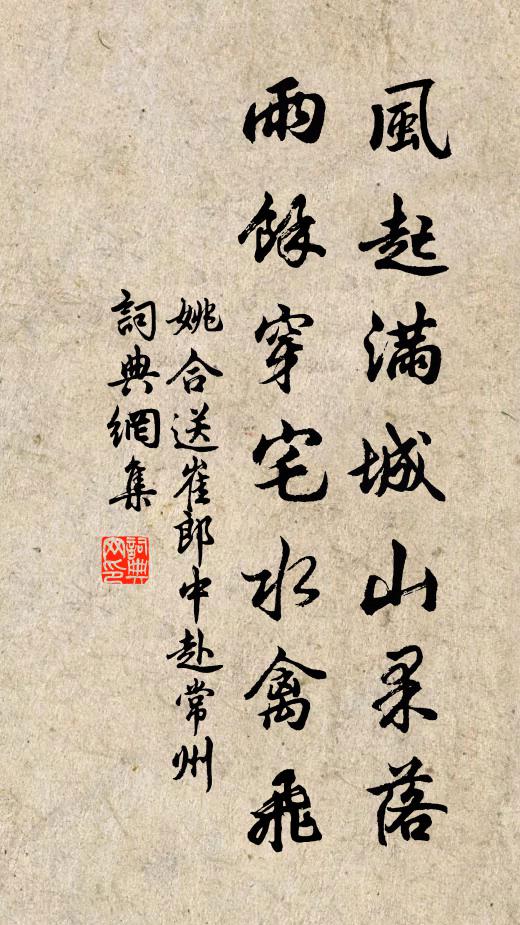 風起滿城山果落
雨餘穿宅水禽飛
姚合送崔郎中赴常州
詞典網集
詞典
网印